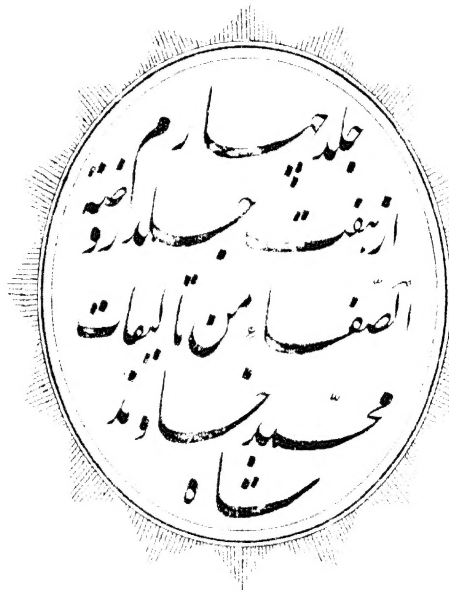 جلد چهارم
از هفت جلد روضة
الصّفاء من تاليفات
محمّد خاوند
شاه